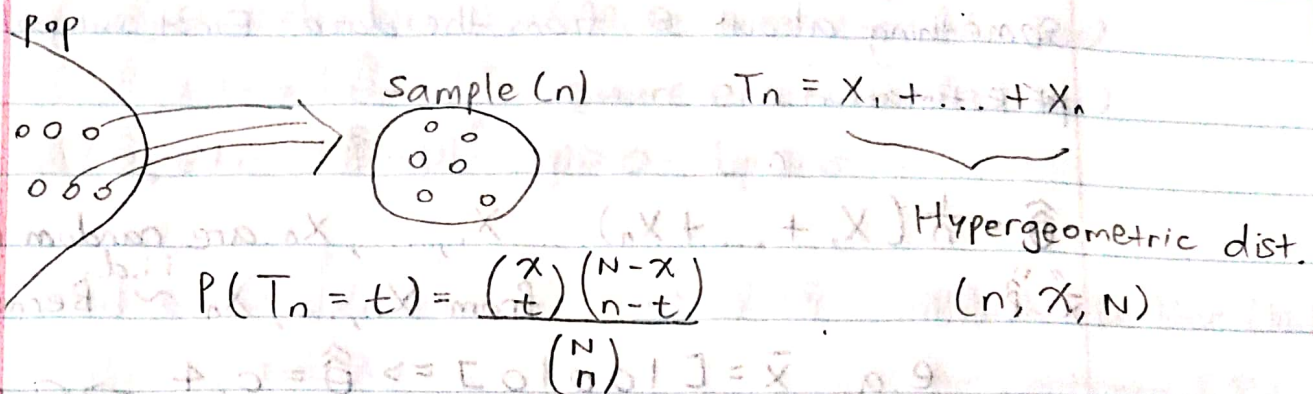 pop
Sample (n) Tn = X₁ + ... + Xₙ
Hypergeometric dist.
P(Tn = t) = (χ t)(N-χ n-t) / (N n) (n, χ, N)